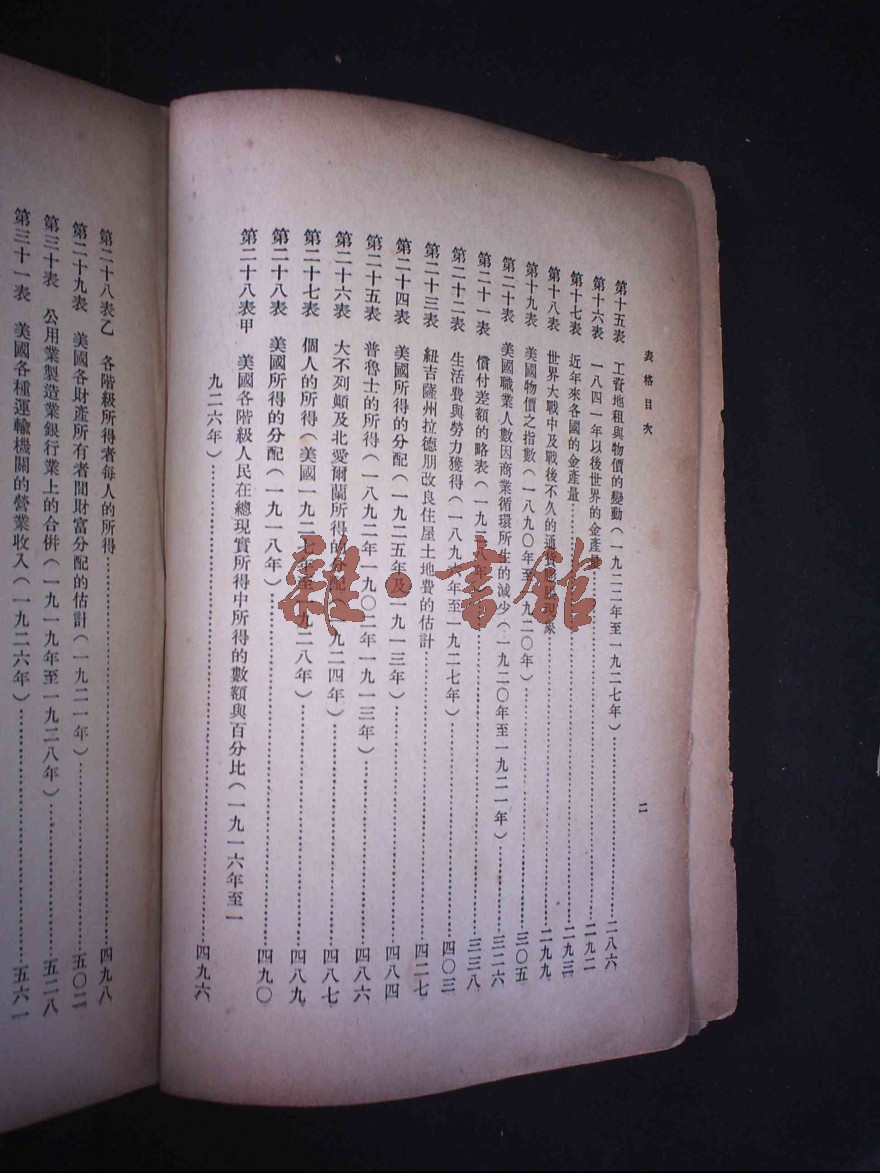 表格目次
二
第十五表 工資地租與物價的變動(一九二二年至一九二七年)……二八六
第十六表 一八四一年以後世界的金產量……二九二
第十七表 近年來各國的金產量……二九三
第十八表 世界大戰中及戰後不久的通貨膨脹現象……二九九
第十九表 美國物價之指數(一八九〇年至一九二〇年)……三〇五
第二十表 美國職業人數因商業循環所生的減少(一九二〇年至一九二一年)……三二六
第二十一表 償付差額的略表(一九二八年)……三三八
第二十二表 生活費與勞力獲得(一八九六年至一九二七年)……四〇三
第二十三表 紐吉薩州拉德朋改良住屋土地費的估計……四二七
第二十四表 美國所得的分配(一九二五年及一九一三年)……四八四
第二十五表 普魯士的所得(一八九二年一九〇二年一九一三年)……四八六
第二十六表 大不列顛及北愛爾蘭所得的分配(一九二四年)……四八七
第二十七表 個人的所得(美國一九二七年至一九二八年)……四八九
第二十八表 美國所得的分配(一九一八年)……四九〇
第二十八表甲 美國各階級人民在總現實所得中所得的數額與百分比(一九一六年至一
九二六年)……四九六
第二十八表乙 各階級所得者每人的所得……四九八
第二十九表 美國各財產所有者間財富分配的估計(一九二一年)……五〇二
第三十表 公用業製造業銀行業上的合併(一九一九年至一九二八年)……五二八
第三十一表 美國各種運輸機關的營業收入(一九二六年)……五六一
雜·書館